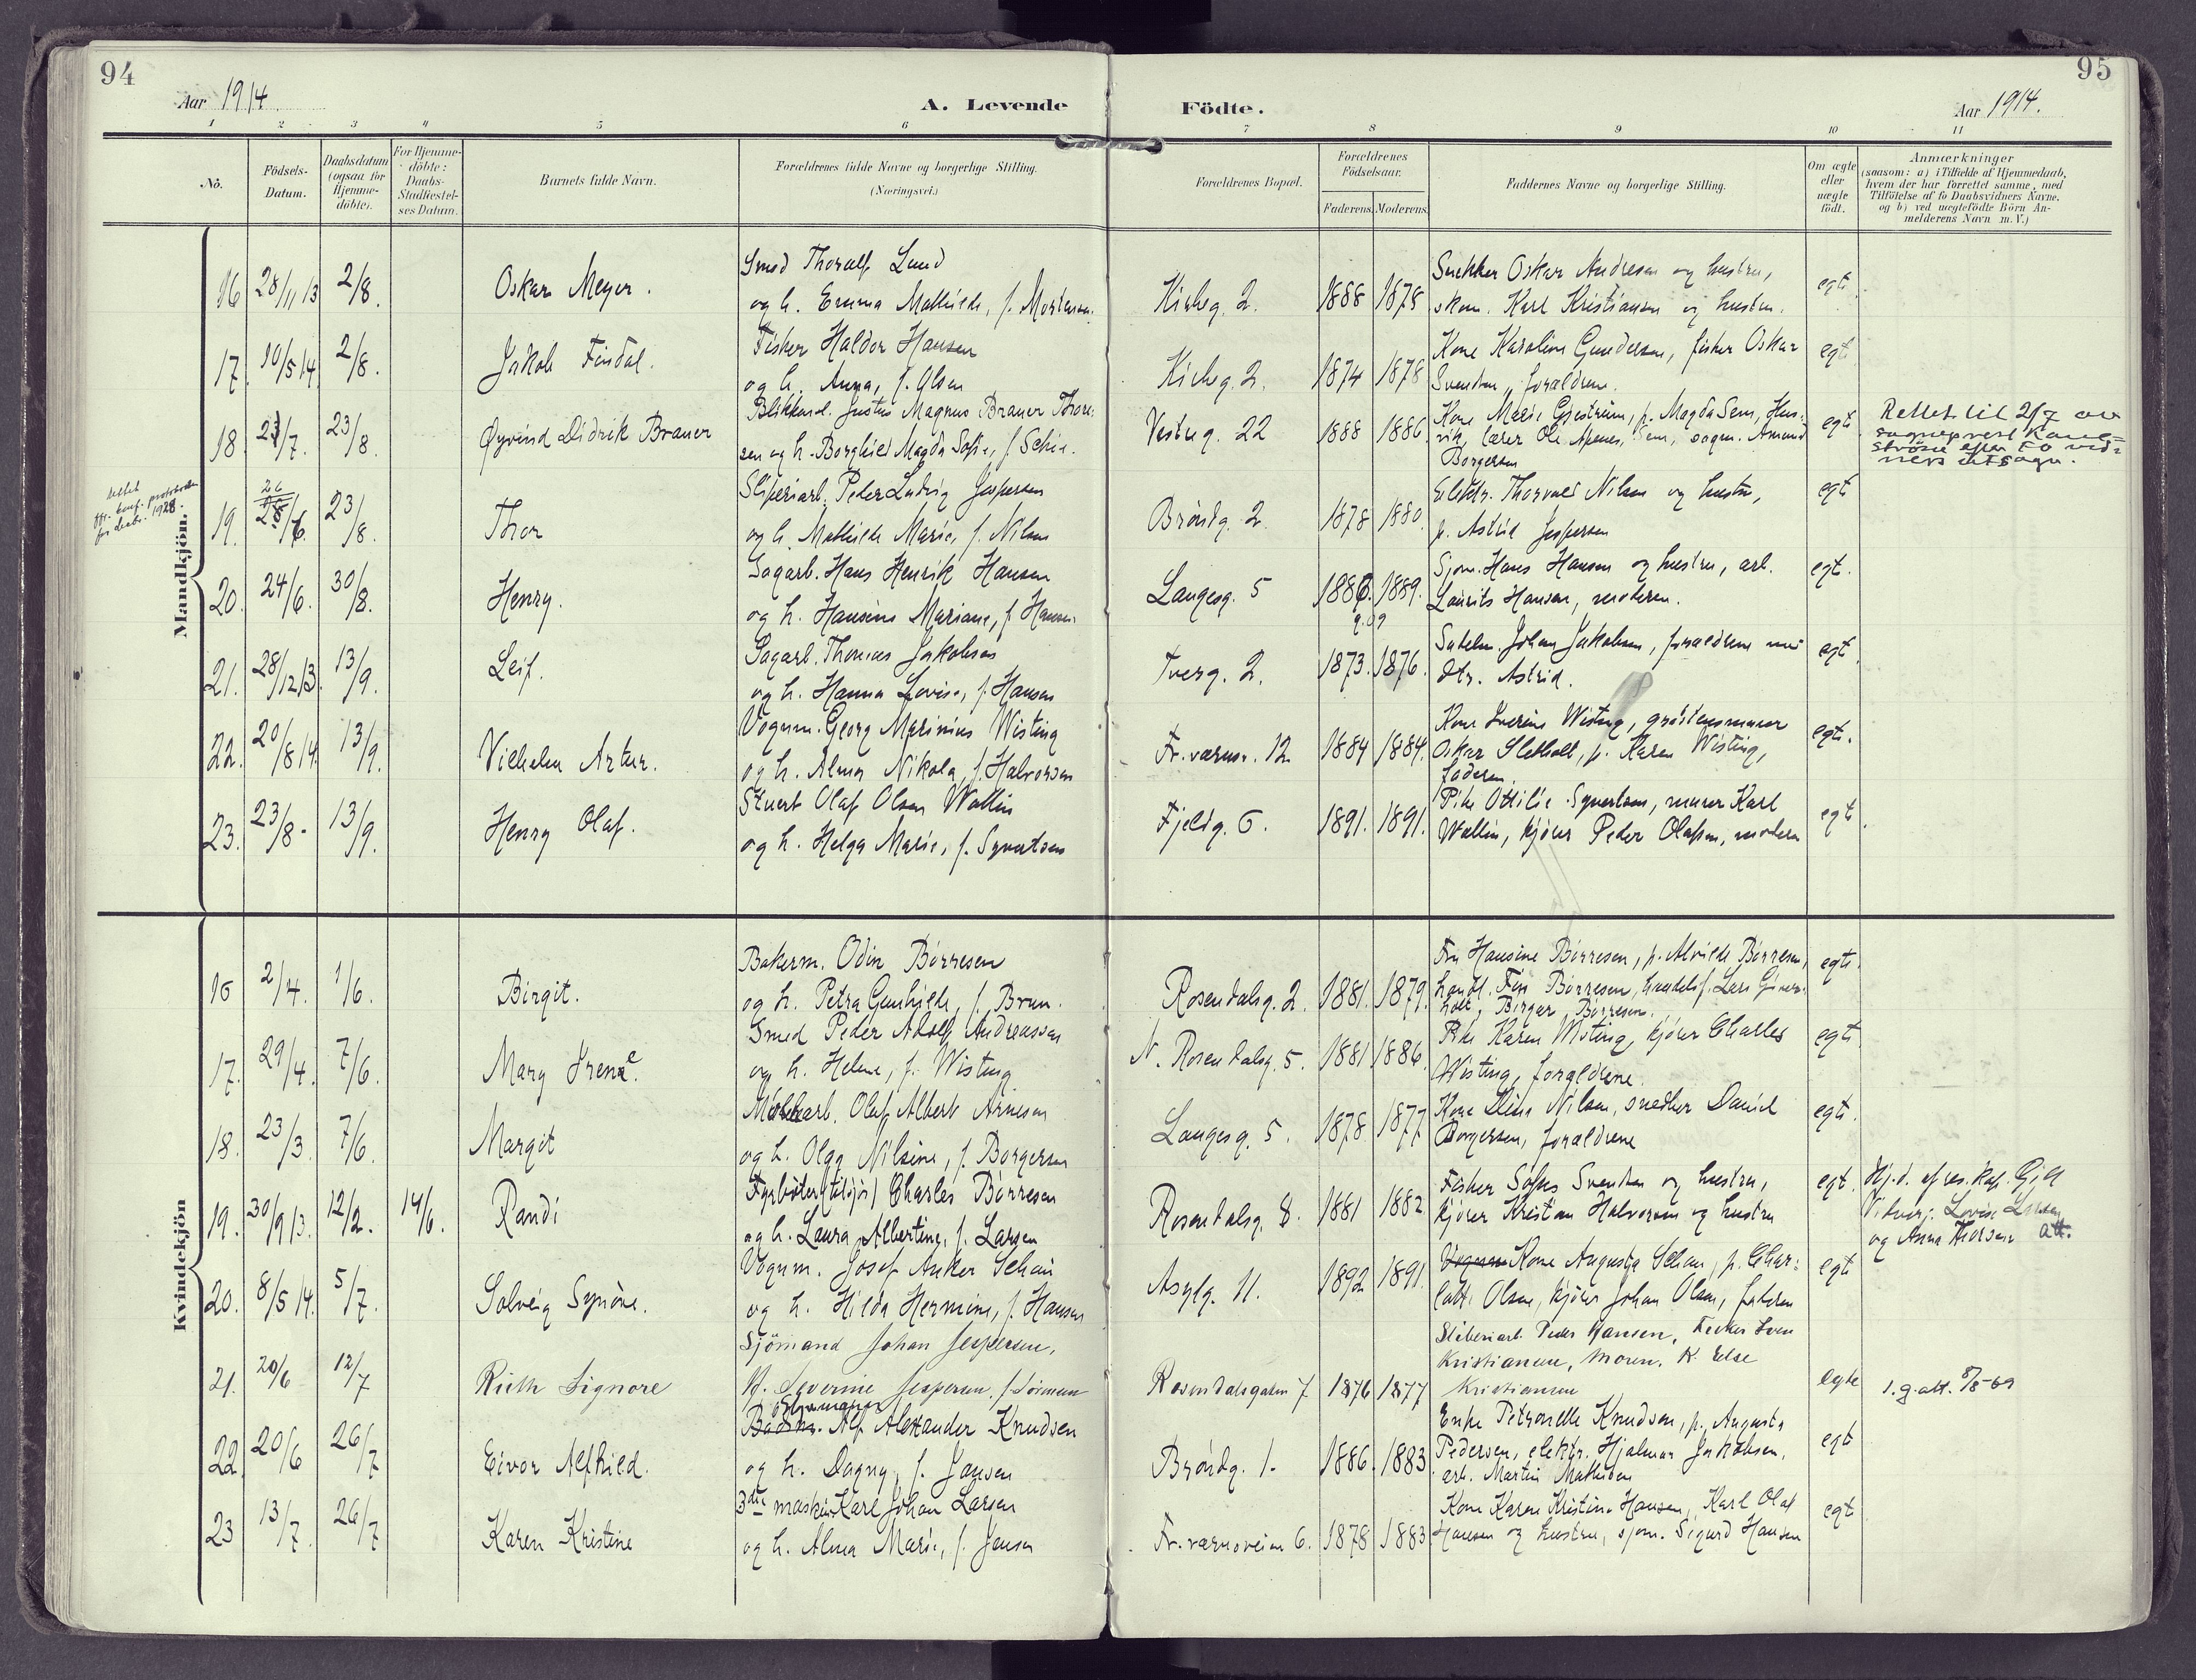 94
95
Aar 1914.
A. Levende
Födte.
Aar 1914.
1 2 3 4 5 6 7 8 9 10 11
No.
Födsels-Datum.
Daabsdatum (ogsaa for Hjemmedöbte).
For Hjemmedöbte: Daabs-Stadfæstelses Datum.
Barnets fulde Navn.
Forældrenes fulde Navne og borgerlige Stilling.
(Næringsvei.)
Forældrenes Bopæl.
Forældrenes Födselsaar.
Faderens. Moderens.
Faddernes Navne og borgerlige Stilling.
Om ægte eller uægte födt.
Anmærkninger
(saasom: a) i Tilfælde af Hjemmedaab, hvem der har forrettet samme, med Tilföielse af to Daabsvidners Navne, og b) ved uægtefödte Börn Anmelderens Navn m. V.)
Mandkjön.
16 28/11 13 2/8. Oskar Meyer.
Smed Thoralf Lund
og h. Emma Mathilde, f. Mortensen.
Kirkeg. 2. 1888 1878
Snekker Oskar Andresen og hustru,
skom. Karl Kristiansen og hustru.
egte
17. 10/5 14. 2/8. Jakob Findal.
Fisker Haldor Hansen
og h. Anna, f. Olsen
Kirkeg. 2. 1874 1878
Kone Karoline Gundersen, fisker Oskar
Svendsen, forældrene.
egte
18 2/7. 23/8. Øyvind Didrik Brauer
Blikkensl. Justus Magnus Brauer Thore-
sen og h. Borghild Magda Sofie, f. Schie.
Vestreg. 22 1888 1886
Kone Marie Gjestrum, p. Magda Sem, Hen-
rik, lærer Ole Apenes, Sem, sogn. Amund
Borgersen
egte
Rettet til 2/7 av
sogneprest
efter to vid-
ners utsagn.
rettet
konf. protokollen
for 1928.
19. 26/6. 23/8. Thor
Sliperiarb. Peder Ludvig Jespersen
og h. Mathilde Marie, f. Nilsen
Brøndg. 2. 1878 1880.
Elektr. Thorvald Nilsen og hustru,
p. Astrid Jespersen
egte
20. 24/6. 30/8. Henry.
Sagarb. Hans Henrik Hansen
og h. Hansine Mariane, f. Hansen.
Langesg. 5 1886. 1889.
Sjøm. Hans Hansen og hustru, arb.
Laurits Hansen, moderen.
egte.
21. 28/12 13. 13/9. Leif.
Sagarb. Thomas Jakobsen
og h. Hanna Lovise, f. Hansen
Tverg. 2. 1873. 1876.
Johan Jakobsen, forældrene med
dtr. Astrid.
egte.
22. 20/8 14. 13/9. Vilhelm Artur.
Vognm. Georg Marinius Wisting
og h. Alma Nikola, f. Halvorsen
Fr.værnsv. 12 1884 1884.
Kone Severine Wisting, gråstensmurer
Oskar Sletholt, p. Karen Wisting,
faderen.
egte.
23. 23/8. 13/9. Henry Olaf.
Stuert Olaf Olsen Wallin
og h. Helga Marie, f. Syvertsen
Fjeldg. 6. 1891. 1891.
Pike Ottilie Syvertsen, murer Karl
Wallin, kjører Peder Olafsen, moderen
egte.
Kvindekjön
16 2/4. 1/6. Birgit.
Bakerm. Odin Børresen
og h. Petra Gunhilde, f. Brun.
Rosendalsg. 2. 1881. 1879.
Fru Hansine Børresen, p. Alvilde Børresen,
handl. Finn Børresen, handelsf. Lars Giver-
holt, Birger Børresen.
egte.
17. 29/4. 7/6. Mary Irene.
Smed Peder Adolf Andreassen
og h. Helene, f. Wisting
N. Rosendalsg. 5. 1881 1886.
Pike Karen Wisting, kjører Charles
Wisting, forældrene.
egte.
18. 23/3. 7/6. Margit
Olaf Albert Arnesen
og h. Olga Nilsine, f. Borgersen
Langesg. 5. 1878 1877
Kone Elise Nilsen, snedker Daniel
Borgersen, forældrene
egte.
19. 30/9 13. 12/2. 14/6. Randi
Fyrbøter (tilsjøs) Charles Børresen
og h. Laura Albertine, f. Larsen
Rosendalsg. 8. 1881 1882
Fisker Sofus Svendsen og hustru,
kjører Kristian Halvorsen og hustru
egte.
Hj.d. af res. kap.
Vidner: Lovise Larsen
og Anna Thorsen att.
20. 8/5 14. 5/7. Solveig Synøve.
Vognm. Josef Anker Schau
og h. Hilda Hermine, f. Hansen
Asylg. 11. 1892 1891.
Kone Augusta Schau, p. Char-
lotte Olsen, kjører Johan Olsen, faderen
egte
21. 20/6 12/7 Ruth Signore
Sjömand Johan Jespersen,
H. Severine Jespersen, f. Sörensen
Rosendalsgaten 7 1876 1877
Sliberiarb. Peder Hansen, Fisker Sven
Kristiansen, Moren, K. Else
Kristiansen
egte
1. g. att. 8/8-69
22. 20/6 26/7 Eivor Alfhild.
Alf Alexander Knudsen
og h. Dagny, f. Jansen
Brøndg. 1. 1886. 1883
Enke Petronelle Knudsen, p. Augusta
Pedersen, elektr. Hjalmar Jakobsen,
arb. Martin Mathisen
egte
23 13/7. 26/7 Karen Kristine
3die maskin. Karl Johan Larsen
og h. Alma Marie, f. Jensen
Fr.værnsveien 6. 1878 1883
Kone Karen Kristine Hansen, Karl Olaf
Hansen og hustru, sjøm. Sigurd Hansen
egte